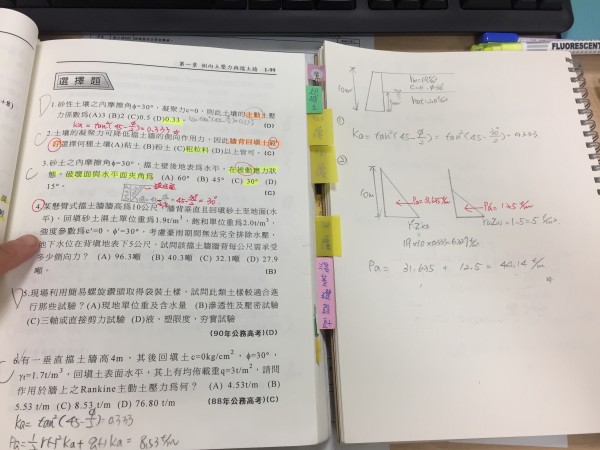 第一章 側向土壓力與擋土牆 1-99
選擇題
1.砂性土壤之內摩擦角φ=30°,凝聚力c=0,則此土壤的主動土壓
力係數為(A)3 (B)2 (C)0.5 (D)0.33
(D)
Ka = tan²(45-φ/2)=0.333
2.土壤的凝聚力可降低擋土牆的側向作用力,因此牆背回填土的
選擇何種土壤(A)粘土(B)粉土(C)粗粒料(D)以上皆可。
(C)
3.砂土之內摩擦角φ=30°,擋土壁後地表為水平,在被動應力狀
態,破壞面與水平面夾角為 (A) 60° (B) 45° (C) 30° (D)
15°。
(C)
45-φ/2=30°
4.某懸臂式擋土牆牆高為10公尺,牆背垂直且回填砂土至地面(水
平),回填砂土濕土單位重為1.9t/m³,飽和單位重為2.0t/m³,
強度參數為c'=0,φ'=30°。考慮豪雨期間無法完全排除水壓,
地下水位在背填地表下5公尺,試問該擋土牆牆背每公尺需承受
多少側向力? (A) 96.3噸 (B) 40.3噸 (C) 32.1噸 (D)27.9
噸。
(B)
5.現場利用簡易螺旋鑽頭取得袋裝土樣,試問此類土樣較適合進
行那些試驗?(A)現地單位重及含水量 (B)滲透性及壓密試驗
(C)三軸或直接剪力試驗 (D)液、塑限度,夯實試驗
(90年公務高考)(D)
6.有一垂直擋土牆高4m,其後回填土c=0kg/cm²,φ=30°,
γt=1.7t/m³,回填土表面水平,其上有均佈載重q=3t/m²,請問
作用於牆上之Rankine主動土壓力為何? (A) 4.53t/m (B)
5.53 t/m (C) 8.53 t/m (D) 76.80 t/m
(88年公務高考)(C)
Ka = tan²(45-φ/2)=0.333
Pa=½rH²Ka + qHKa = 8.53 t/m
FLUORESCENT
10m
①
Ka = tan²(45-φ/2) = tan²(45-30/2) = 0.333
②
10m
Pa=31.635 t/m
Pa = 12.5 t/m
1.9×10×0.333=6.327 t/m
Pa = 31.635 + 12.5 = 44.14 t/m